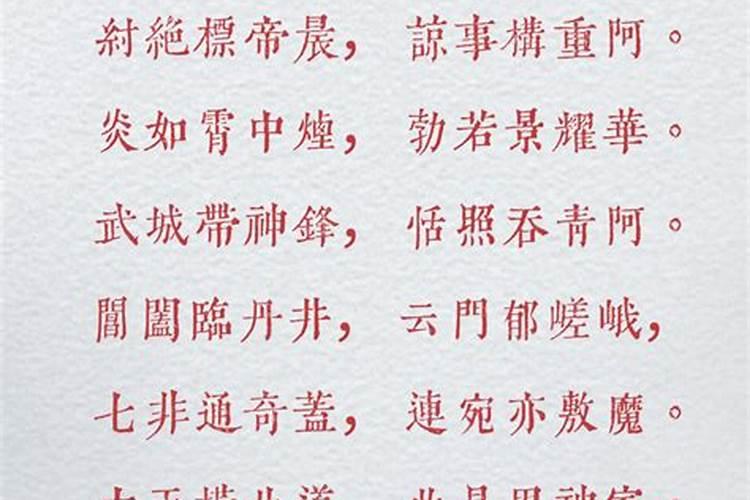 紂絶標帝晨，諒事構重阿。
炎如霄中煙，勃若景耀華。
武城帶神鋒，恬照吞青阿。
閶闔臨丹井，云門郁嵯峨，
七非通奇蓋，連宛亦敷魔。